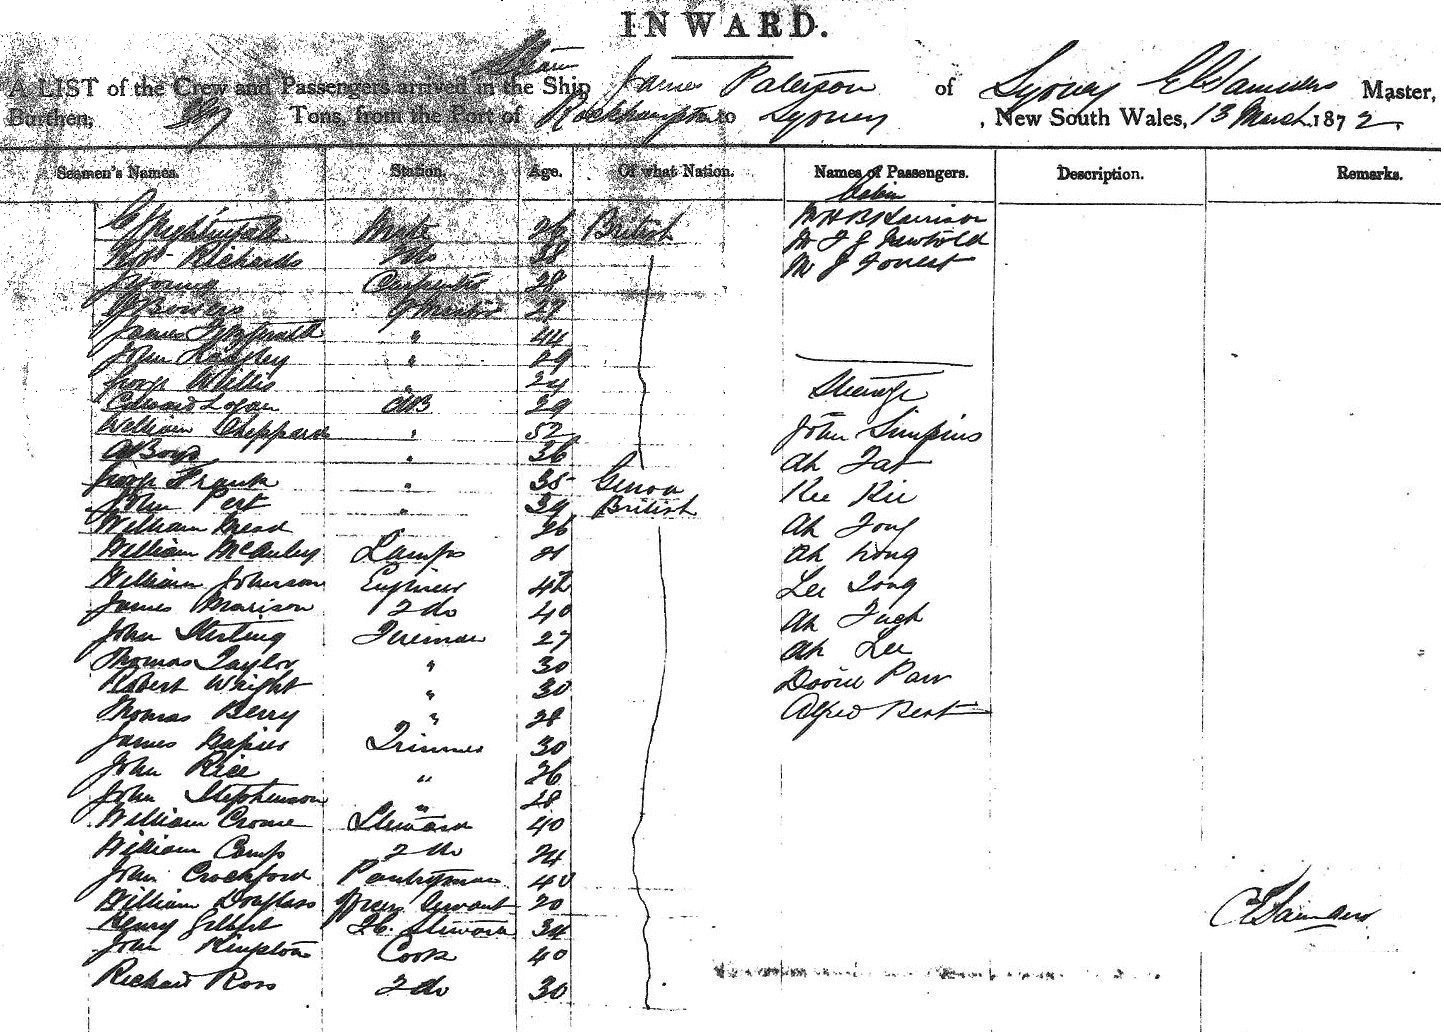 INWARD.
A LIST of the Crew and Passengers arrived in the Ship James Paterson of Sydney Master,
Burthen, Tons, from the Port of Rockhampton to Sydney, New South Wales, 13 March 1872.
Seamen's Names. Station. Age. Of what Nation. Names of Passengers. Description. Remarks.
Cabin
Mate 26 British Mr H B Harrison
Thos Richards Do 38 Mr T J Newbold
J Young Carpenter 28 Mr J Forrest
29
James 44
John 29
George Willis 24 Steerage
Edward Logan AB 29
William Sheppard " 52 John Simpins
A Boys " 36 Ah Fat
George Frank " 35 Genoa Kee Kie
John Pert " 39 British
William Mead 26 Ah Fong
William McAuley Lamps 21 Ah Long
William Johnson Engineer 42 Lee Tong
James Marison 2 do 40 Ah
John Stirling Fireman 27 Ah Lee
Thomas Taylor " 30
Robert Wright " 30 Parr
Thomas Berry " 28 Alfred Bent
James Napier Trimmer 30
John Rice " 26
John Stephenson " 28
William Crome Steward 40
William Camp 2 do 24
John Crockford Pantryman 40
William Douglass Servant 20
Henry Gilbert Steward 34
E Saunders
John Kingston Cook 40
Richard Ross 2 do 30